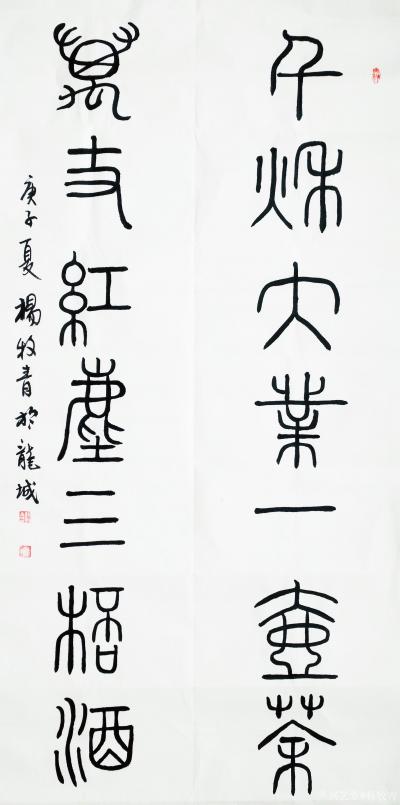 千秋大業一壺茶
萬丈紅塵三杯酒
庚子夏楊牧青於龍城